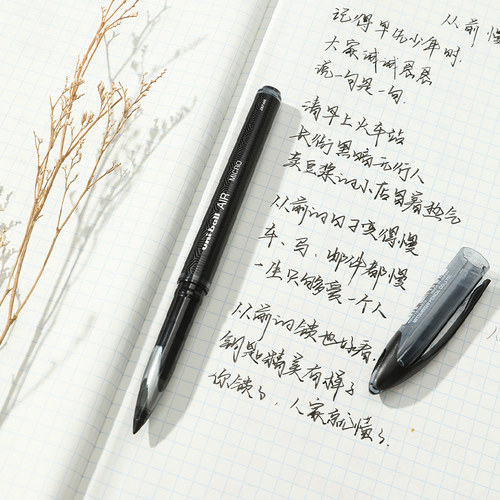 从前慢
记得早先少年时
大家诚诚恳恳
说一句 是一句
清早上火车站
长街黑暗无行人
卖豆浆的小店冒着热气
从前的日子变得慢
车、马、邮件都慢
一生只够爱一个人
从前的锁也好看
钥匙精美有样子
你锁了,人家就懂了.
uni-ball AIR MICRO